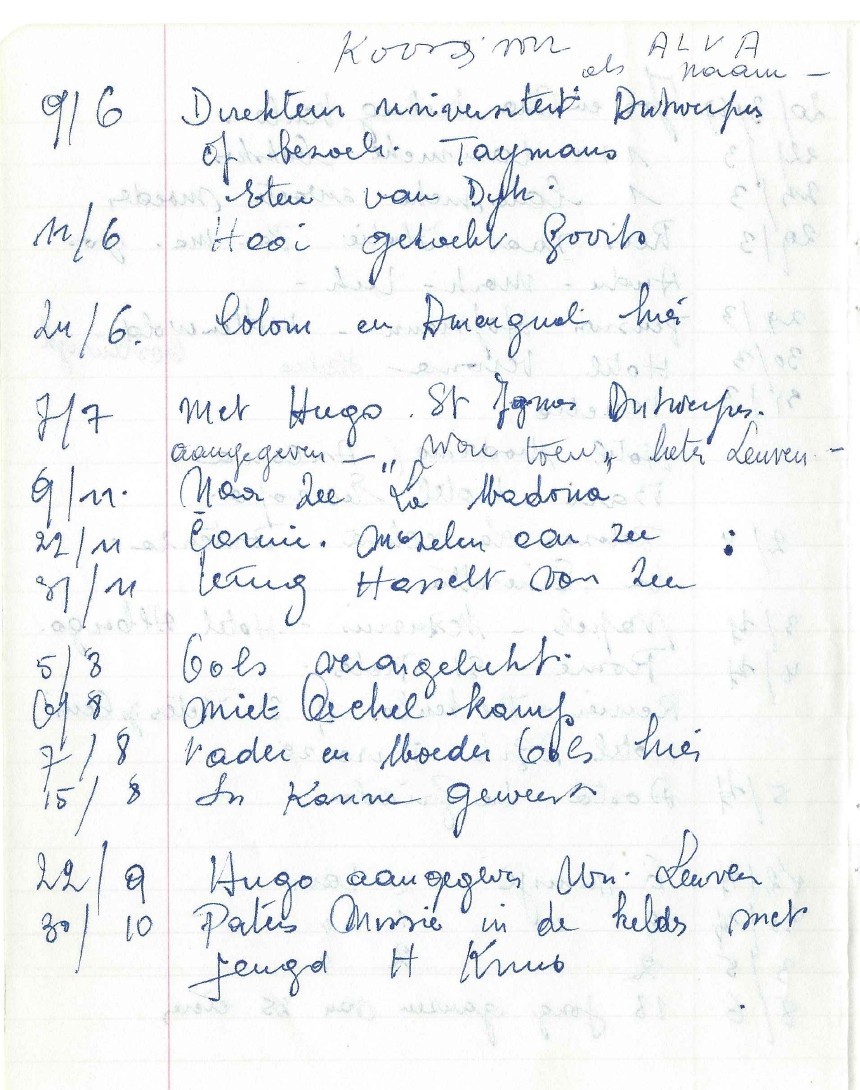 ALVA
als naam -
9/6 Direkteur universiteit Antwerpen
op bezoek. Taymans
Eten van Dijk.
11/6 Hooi gekocht Goorts
24/6. Colom en hier
7/7 met Hugo. St Ignas Antwerpen.
aangegeven - " " Leuven -
9/11. Naar Zee La Madona
22/11 Mazelen aan zee
31/11 terug Hasselt van Zee
5/8 verongelukt.
6/8 Miet Achel kamp
7/8 Vader en Moeder hier
15/8 In Kanne geweest
22/9 Hugo aangegeven Un. Leuven
30/10 Paters Missie in de kelder met
jeugd H Kruis